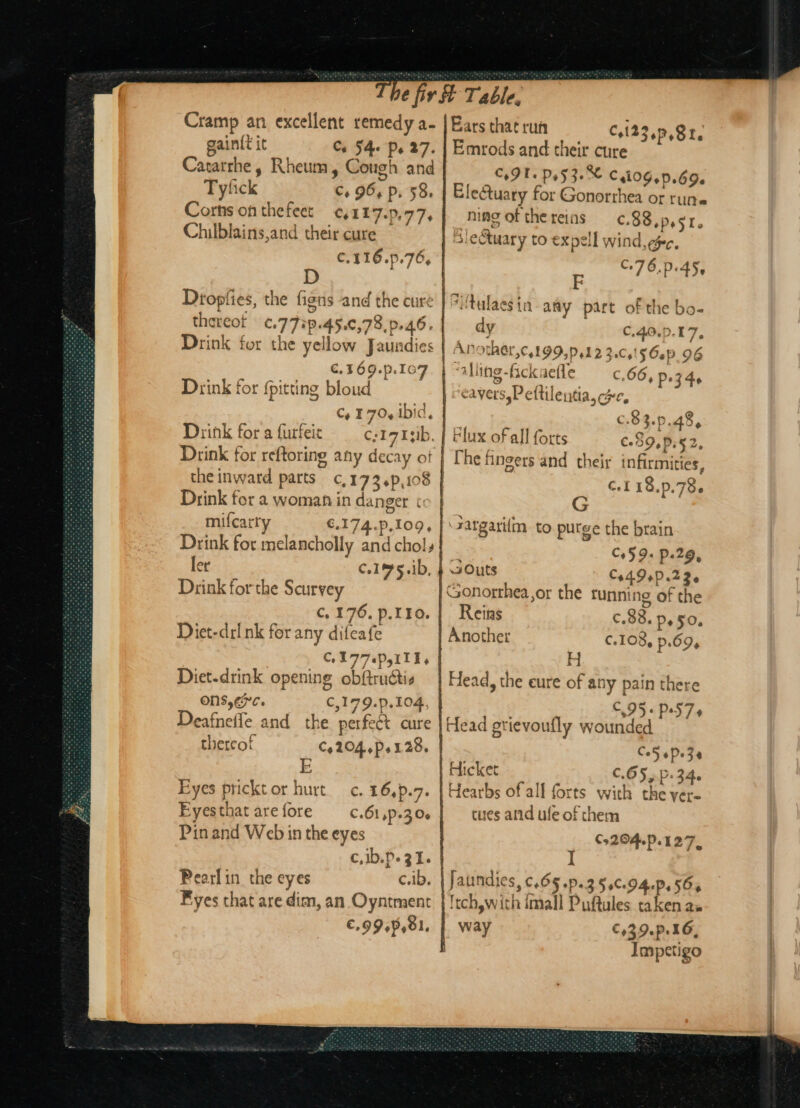 The first Table.
Cramp an excellent remedy a-
gainſt it c. 54. p. 27.
Catarrhe, Rheum, Cough and
Tyſick c. 96, p. 58.
Corns on the feet c,117.p,77.
Chilblains,and their cure
c.116.p.76,
D
Dropſies, the ſigns and the cure
thereof c.77:p.45.c,78,p.46.
Drink for the yellow Jaundies
c.169.p.107
Drink for ſpitting bloud
c, 170, ibid.
Drink for a ſurfeit c.171:ib.
Drink for reſtoring any decay of
the inward parts c,173.p,108
Drink for a woman in danger to
miſcarry c.174.p.109.
Drink for melancholly and chol,
ler c.175.ib.
Drink for the Scurvey
c, 176. p.110.
Diet-drink for any diſeaſe
c.177.p,111.
Diet-drink opening obſtructi,
ons,&c. c,179.p.104,
Deafneſſe and the perfect cure
thereof c,204.p.128.
E
Eyes prickt or hurt c. 16,p.7.
Eyes that are ſore c.61,p.30.
Pin and Web in the eyes
c,ib.p.31.
Pearl in the eyes c.ib.
Eyes that are dim, an Oyntment
c.99.p,81.
Ears that run c,123.p.81.
Emrods and their cure
c,91. p.53.& c,109.p.69.
Electuary for Gonorrhea or run-
ning of the reins c.88,p.51.
Electuary to expell wind,&c.
c.76.p.45.
F
Fiſtulaes in any part of the bo-
dy c.40.p.17.
Another,c,199,p.123.c,156.p.96
Falling-ſickneſſe c,66, p.34.
Feavers,Peſtilentia,&c,
c.83.p.48,
Flux of all ſorts c.89.p.52,
The fingers and their infirmities,
c.118.p.78.
G
Gargariſm to purge the brain
c.59. p.29,
Gouts c.49.p.23.
Gonorrhea,or the running of the
Reins c.88. p. 50.
Another c.108, p.69,
H
Head, the cure of any pain there
c,95. p.57.
Head grievouſly wounded
c.5.p.3.
Hicket c.65, p.34.
Hearbs of all ſorts with the ver-
tues and uſe of them
c,204.p.127.
I
Jaundies, c.65.p.35.c.94.p. 56.
Itch,with ſmall Puſtules taken a-
way c.39.p.16,
Impetigo